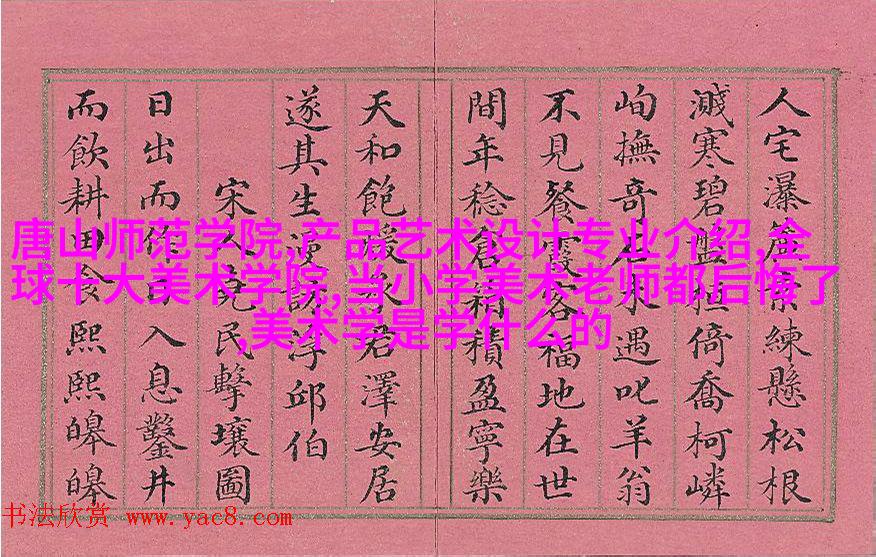 人宅瀑練懸松根
濺寒碧盤倚喬柯嶙
峋撫奇遇叱羊翁
不見餐霞客福地在世
間年稔倉箱積盈寧樂
天和飽煖君澤安居
遂其生漫說浮邱伯
宋人堯民擊壤圖
日出而作日入息鑿井
而飲耕田食熙熙皞皞
唐山师范学院,产品艺术设计专业介绍,全
球十大美术学院,当小学美术老师都后悔了
,美术学是学什么的
书法欣赏 www.yac8.com